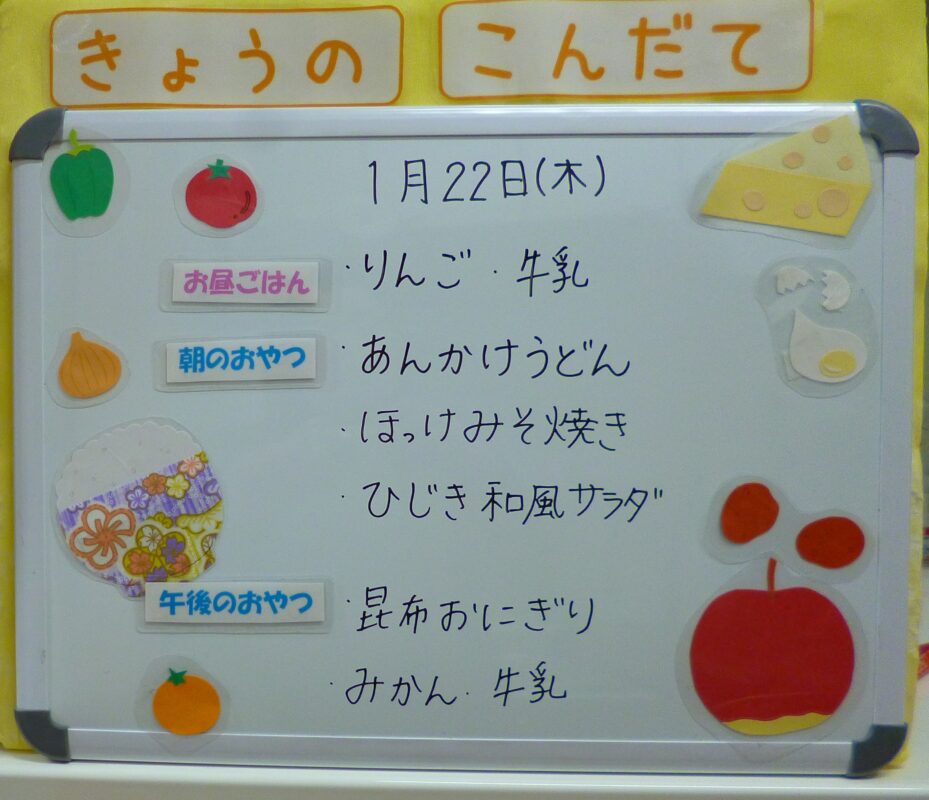 きょうの こんだて
1月22日(木)
お昼ごはん ・りんご・牛乳
朝のおやつ ・あんかけうどん
・ほっけみそ焼き
・ひじき和風サラダ
午後のおやつ ・昆布おにぎり
・みかん・牛乳